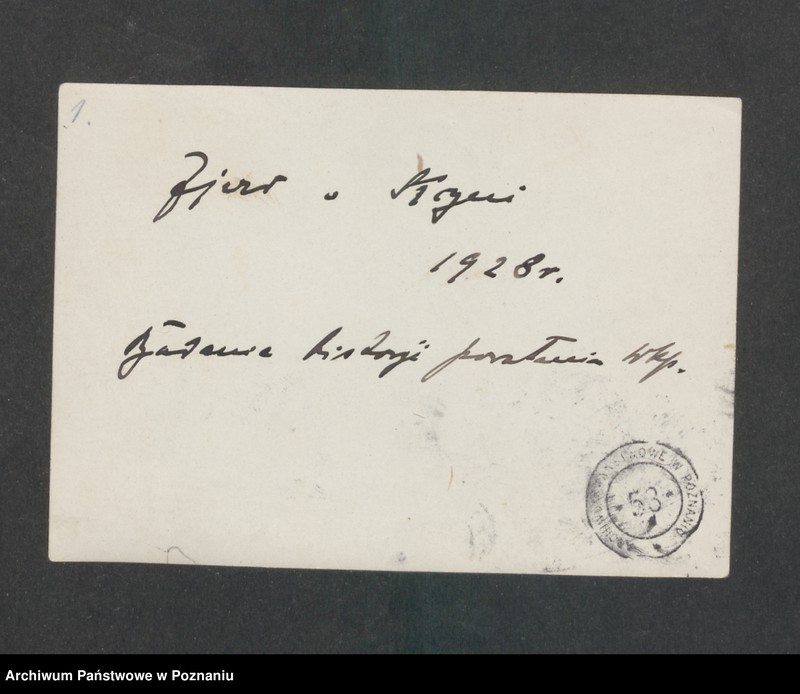 1.
Zjazd w Kcyni
1928 r.
Badanie historji powstania Wlkp.
ARCHIWUM PAŃSTWOWE W POZNANIU
53
Archiwum Państwowe w Poznaniu